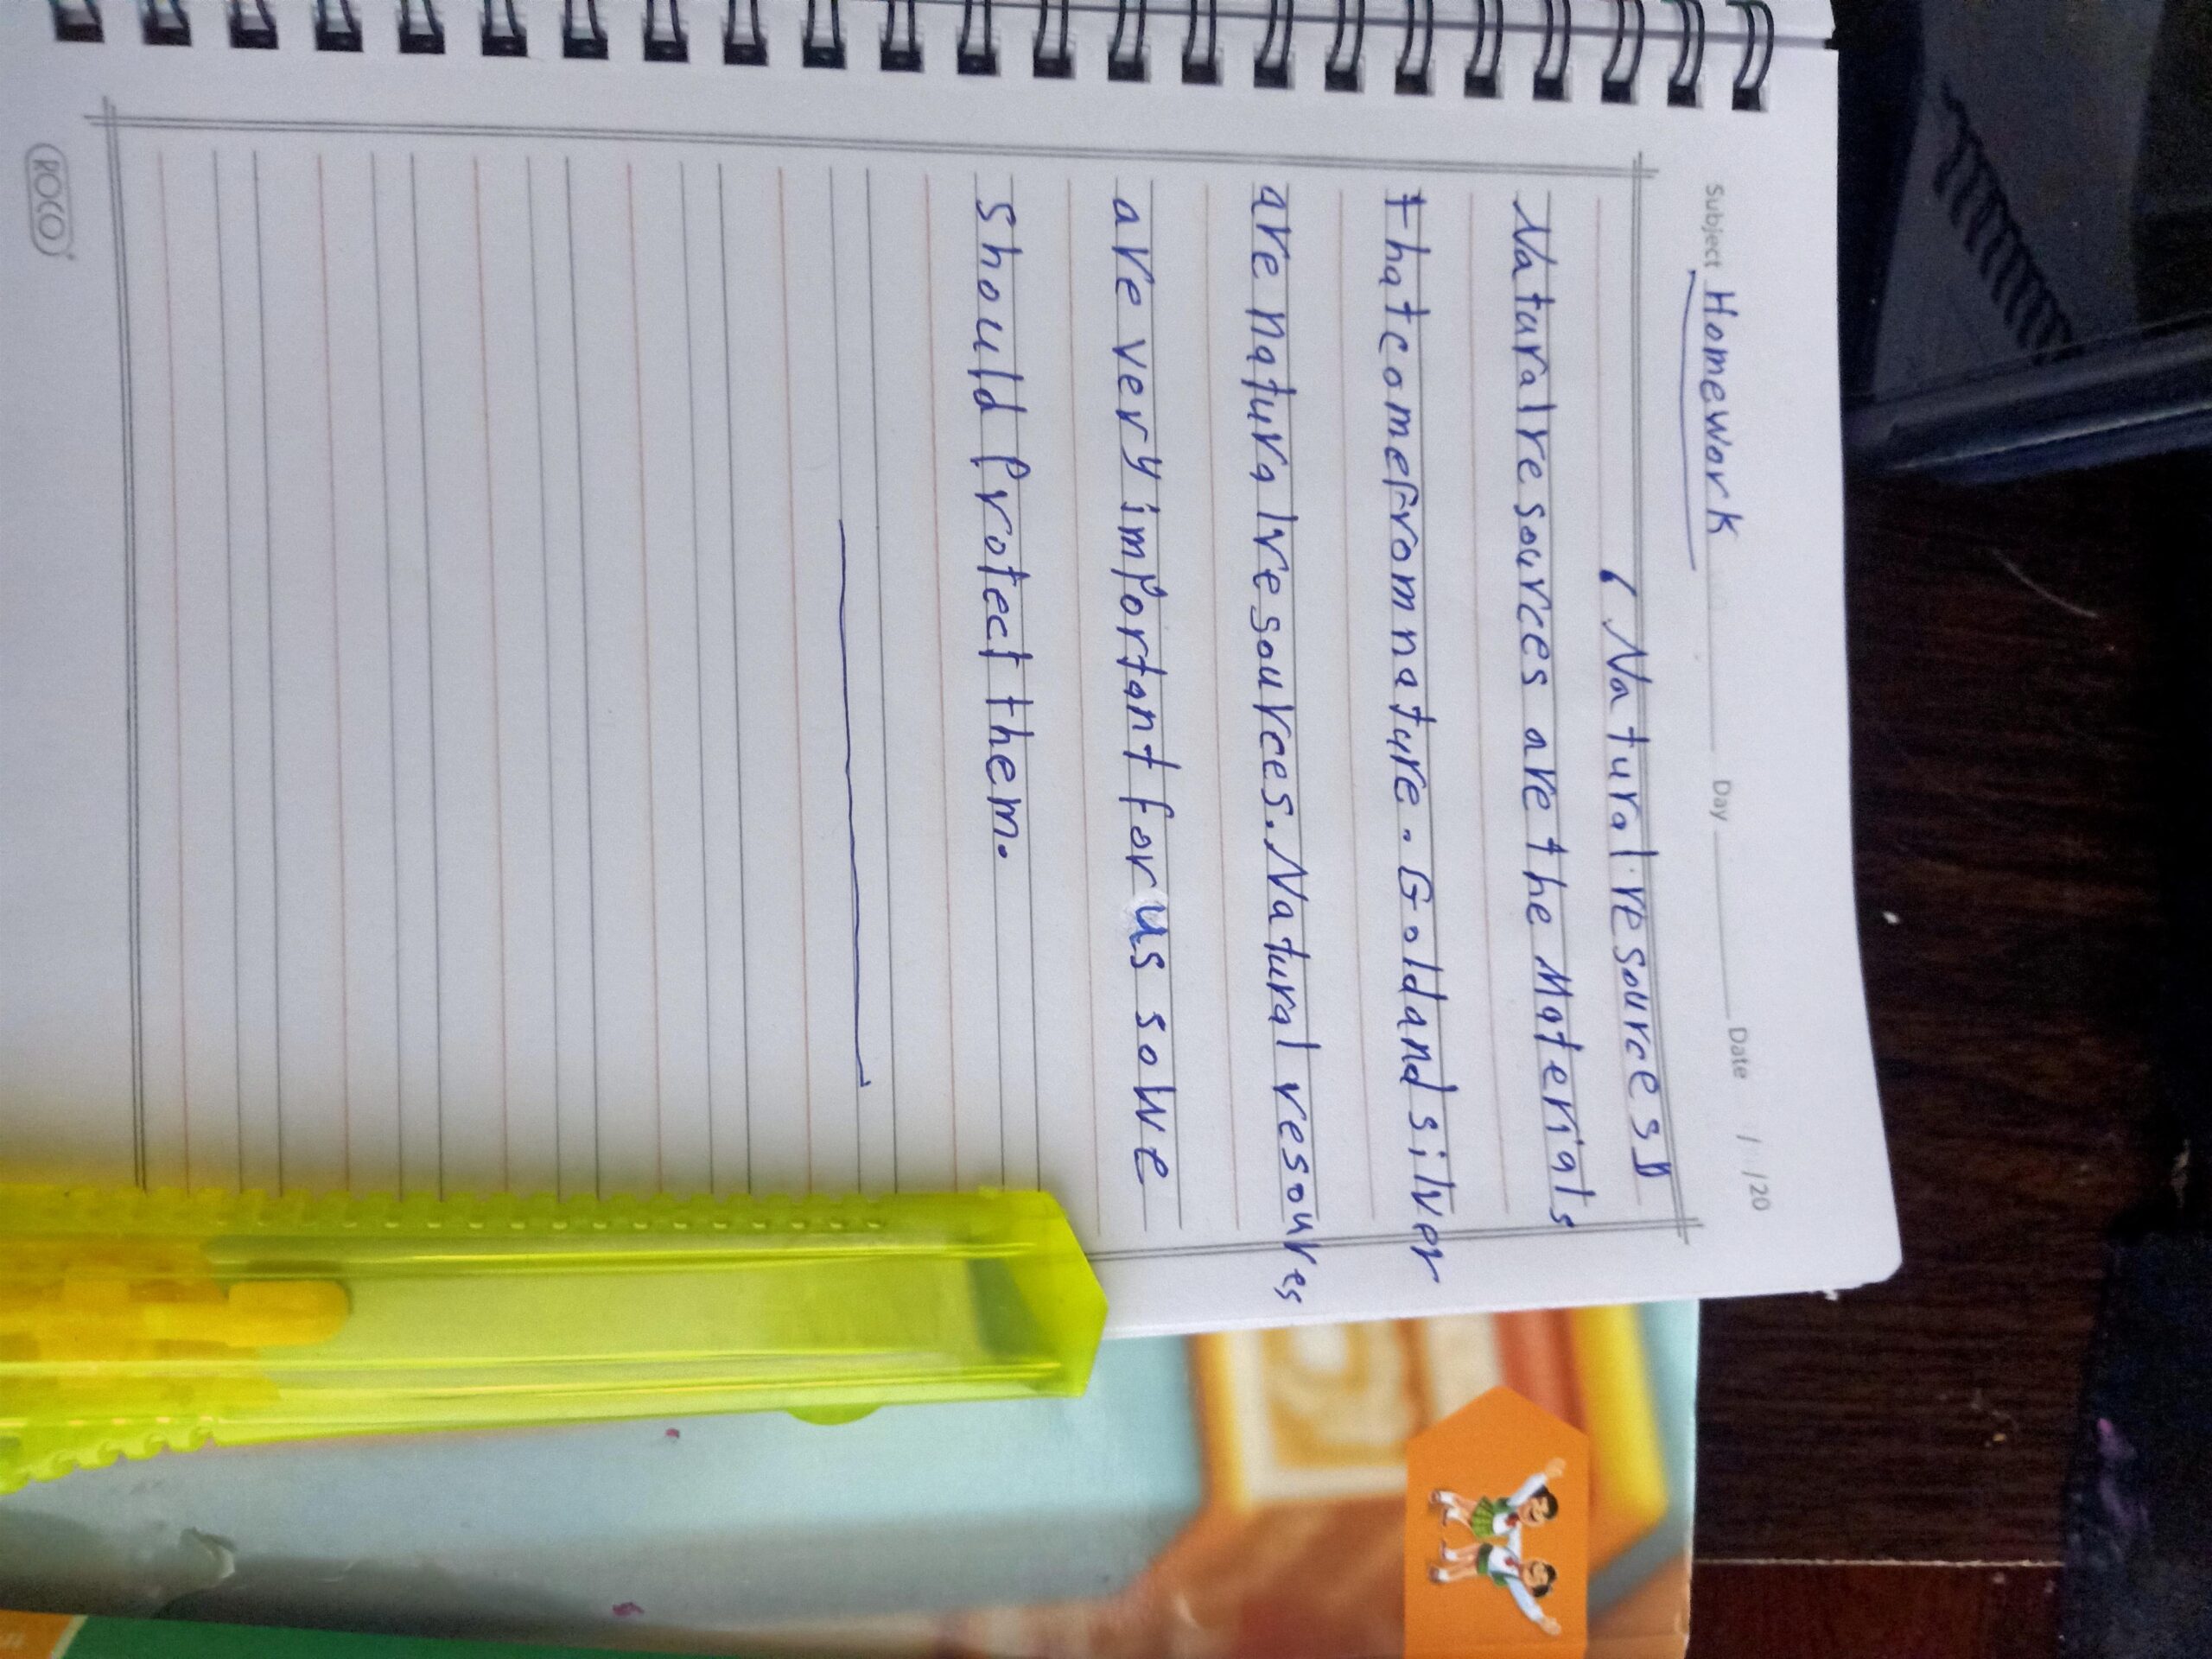 Subject Homework Day Date / /20
( Natural resources)
Natural resources are the Materials
that come from nature. Gold and silver
are natural resources. Natural resoures
are very important for us so we
should Protect them.
ROCO